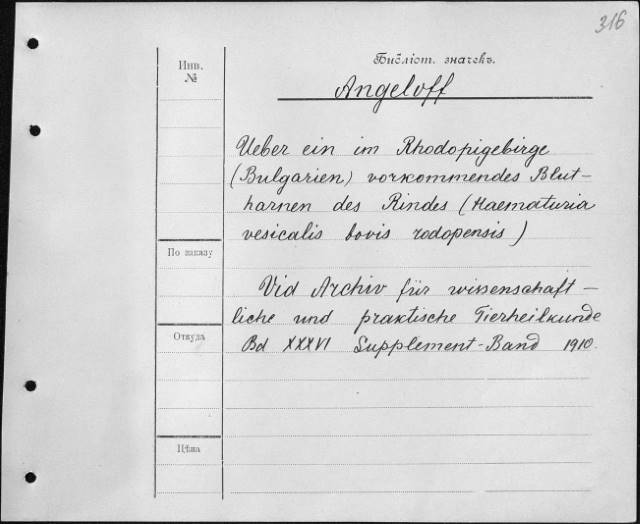 316
Инв.
№
Библіот. значекъ.
Angeloff
Ueber ein im Rhodopigebirge
(Bulgarien) vorkommendes Blut-
harnen des Rindes (Haematuria
vesicalis bovis rodopensis)
По заказу
Vid Archiv für wissenschaft-
liche und praktische Tierheilkunde
Откуда
Bd XXXVI Supplement-Band 1910.
Цѣна